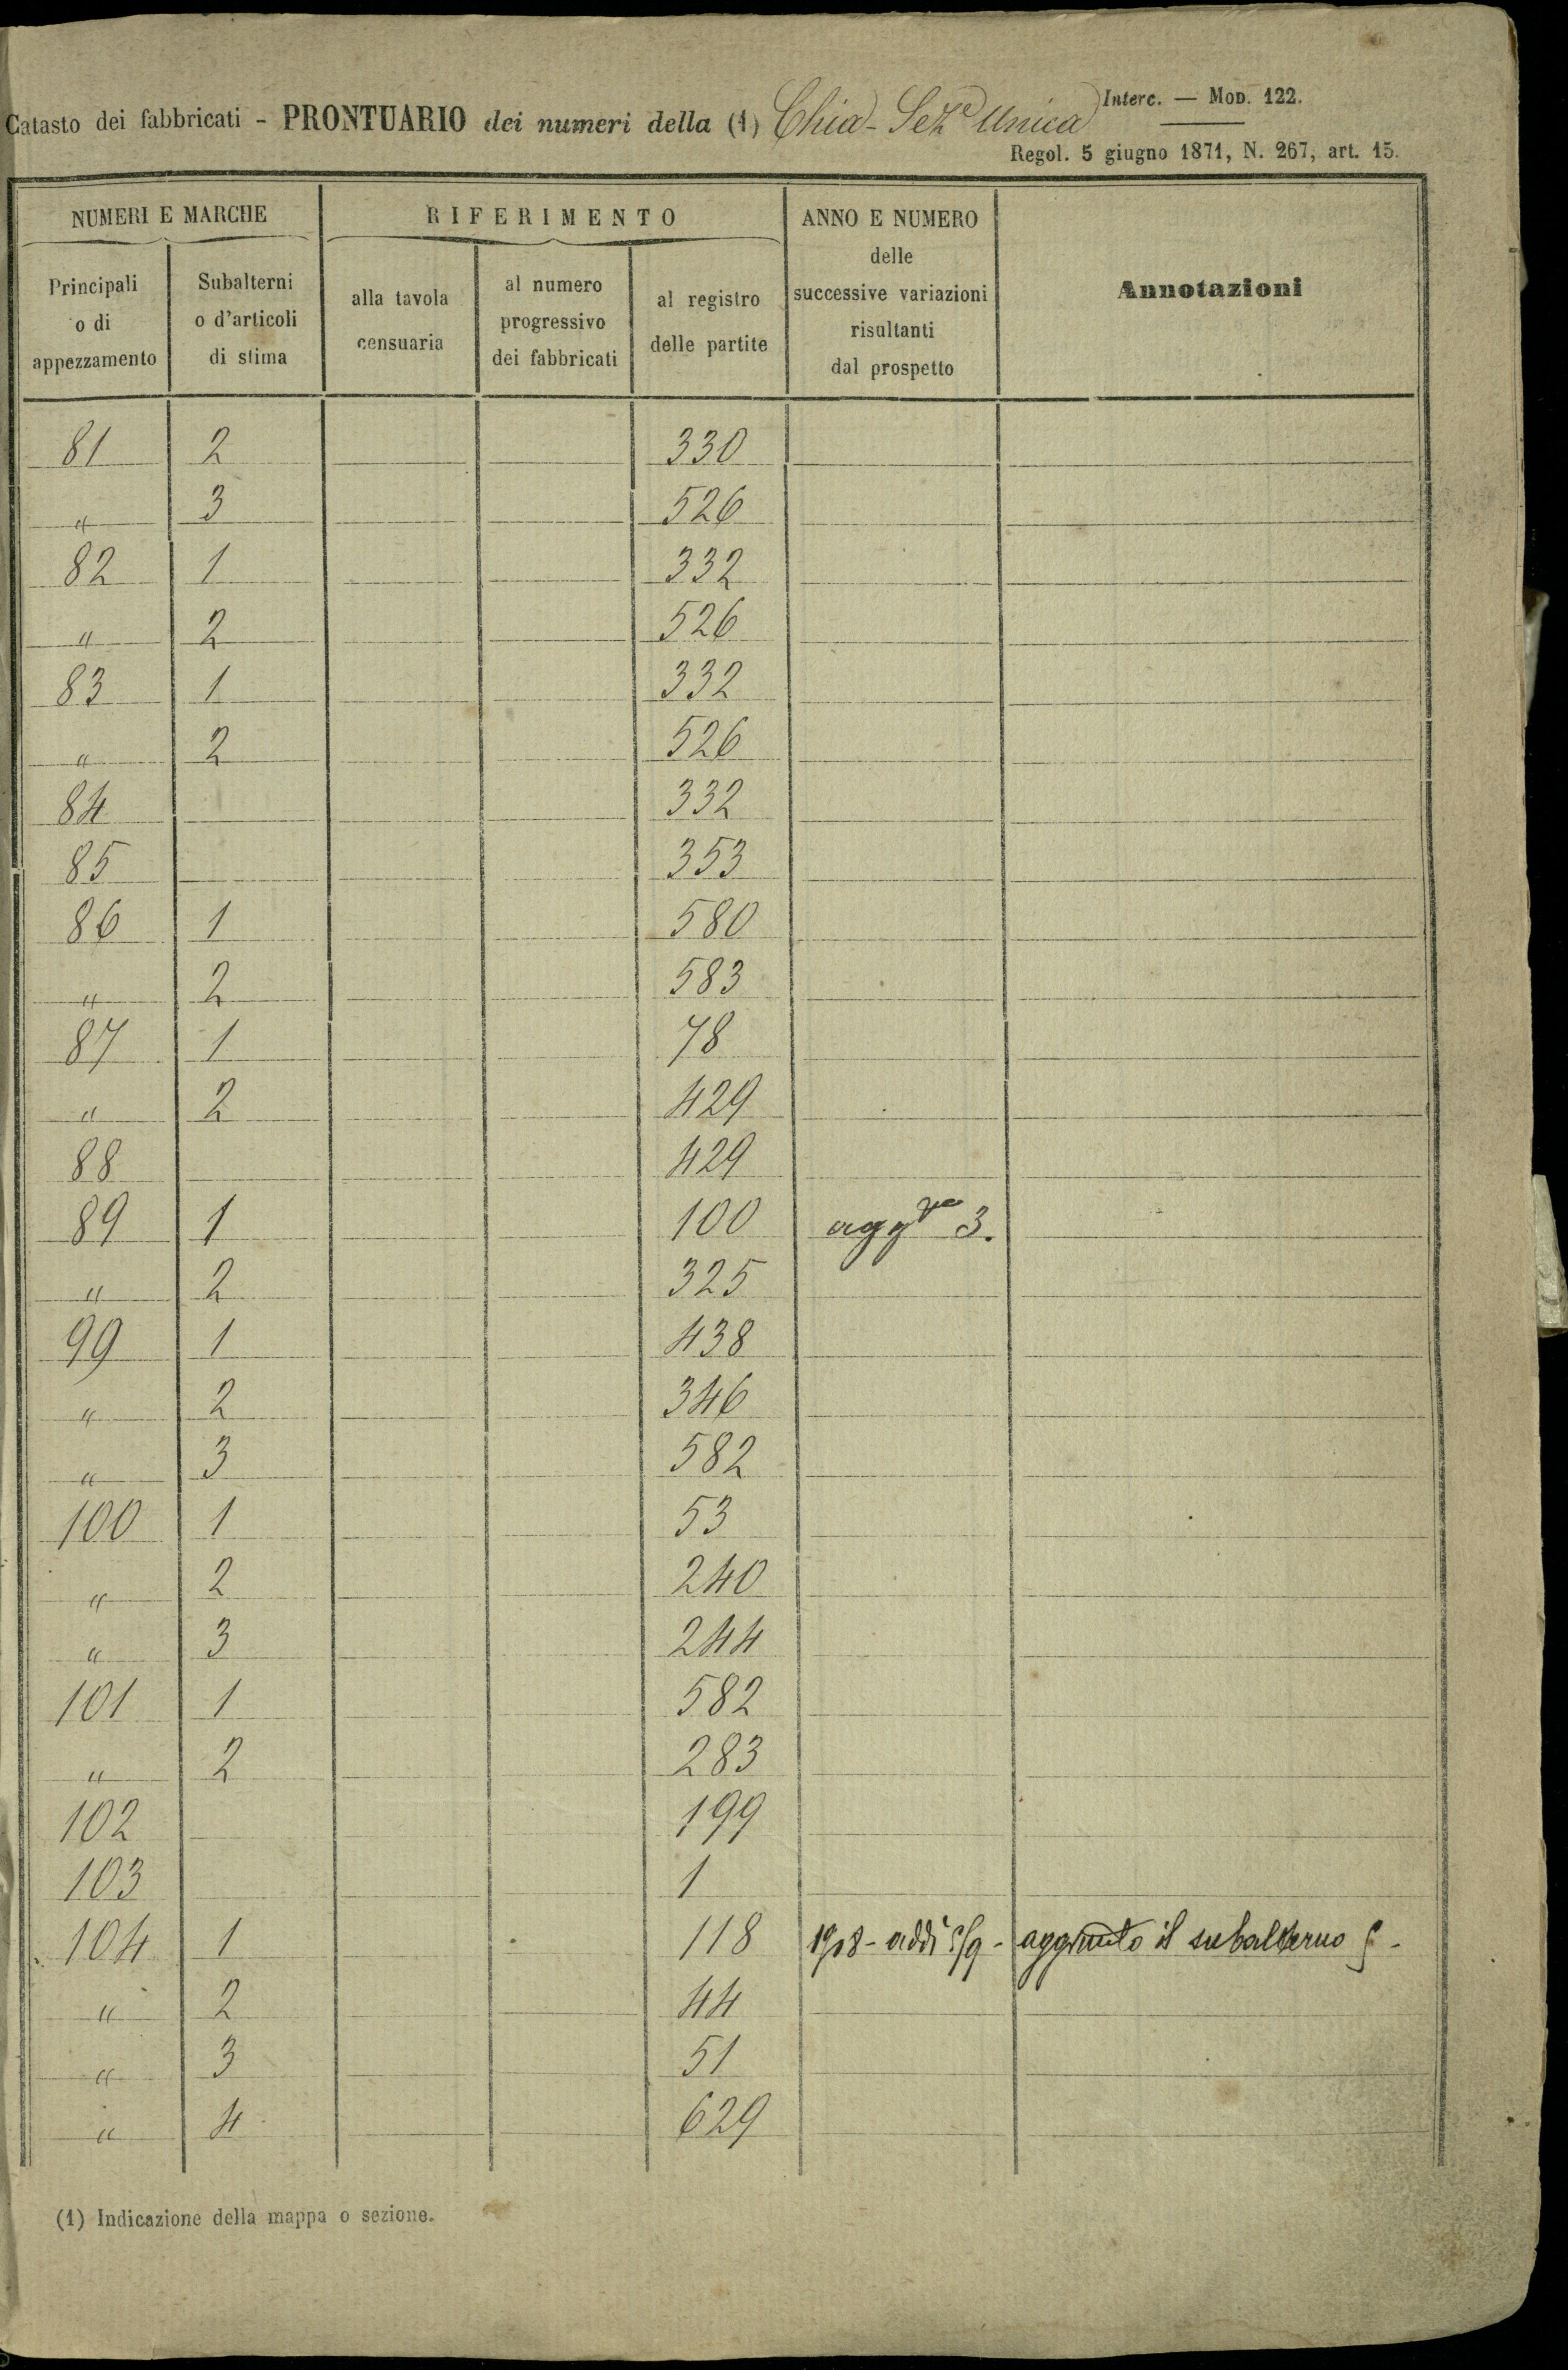 Interc. — Mod. 122.
Catasto dei fabbricati - PRONTUARIO dei numeri della (1) Chia - Sez.e Unica
Regol. 5 giugno 1871, N. 267, art. 15.
NUMERI E MARCHE RIFERIMENTO ANNO E NUMERO delle successive variazioni risultanti dal prospetto Annotazioni
Principali o di appezzamento Subalterni o d'articoli di stima alla tavola censuaria al numero progressivo dei fabbricati al registro delle partite
81 2 330
" 3 526
82 1 332
" 2 526
83 1 332
" 2 526
84 332
85 353
86 1 580
" 2 583
87 1 78
" 2 429
88 429
89 1 100 3.
" 2 325
99 1 438
" 2 346
" 3 582
100 1 53
" 2 240
" 3 244
101 1 582
" 2 283
102 199
103 1
104 1 118 1908 - addì - aggiunto il subalterno
" 2 44
" 3 51
" 4 629
(1) Indicazione della mappa o sezione.